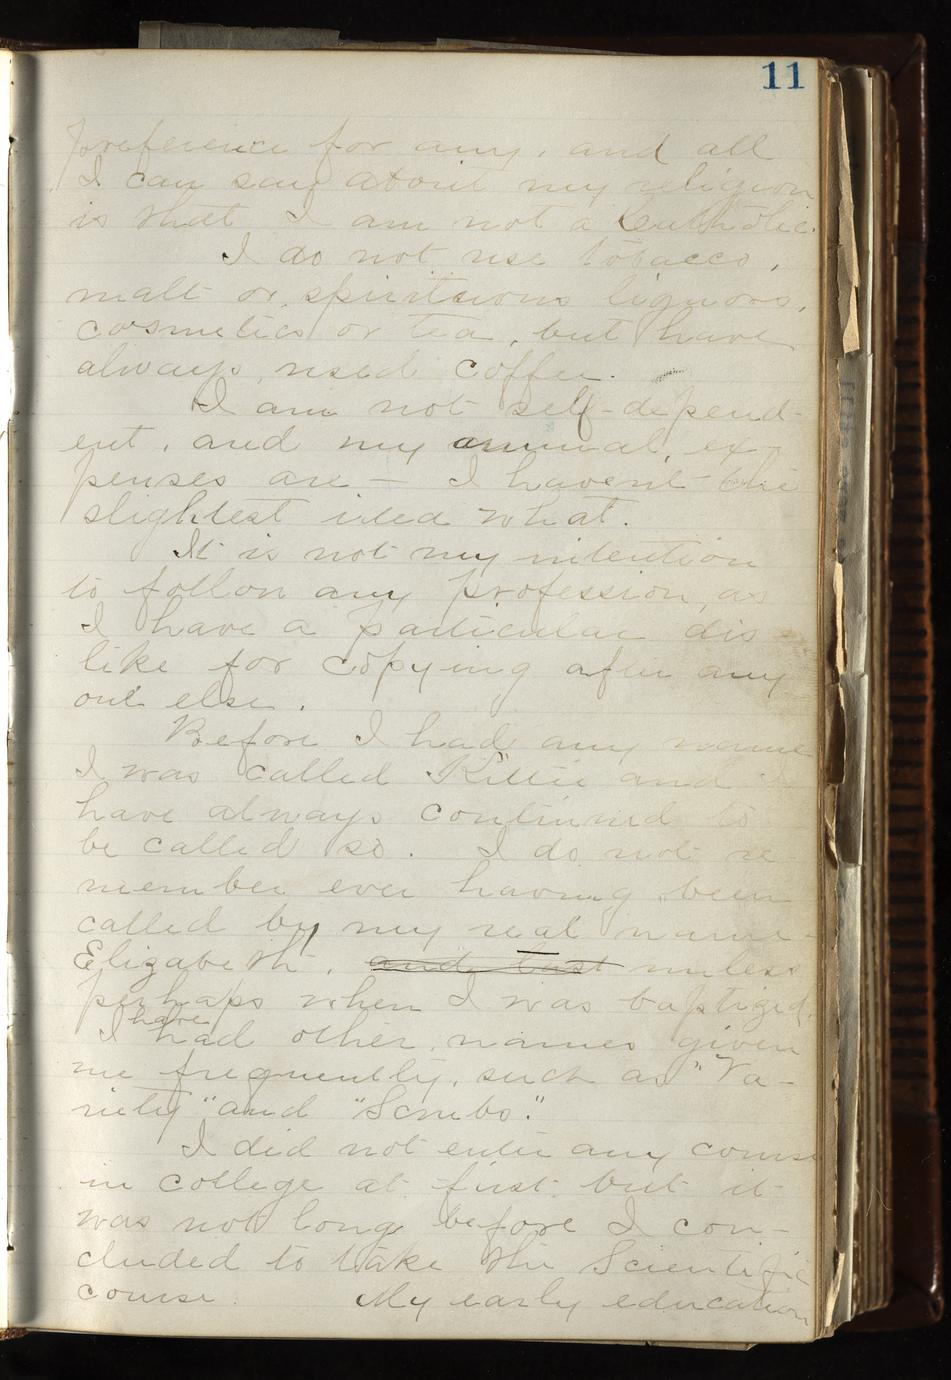 11
preference for any, and all
I can say about my religion
is that I am not a Catholic.
I do not use tobacco,
malt or spirituous liquors,
cosmetics or tea, but have
always used coffee.
I am not self-depend-
ent, and my annual ex-
penses are — I havent the
slightest idea what.
It is not my intention
to follow any profession, as
I have a particular dis-
like for copying after any
one else.
Before I had any name
I was called "Kittie" and I
have always continued to
be called so. I do not re-
member ever having been
called by my real name-
Elizabeth, and last unless
perhaps when I was baptized.
I have had other names given
me frequently, such as "Va-
riety" and "Scrubs."
I did not enter any course
in college at first but it
was not long before I con-
cluded to take the Scientific
course. My early education